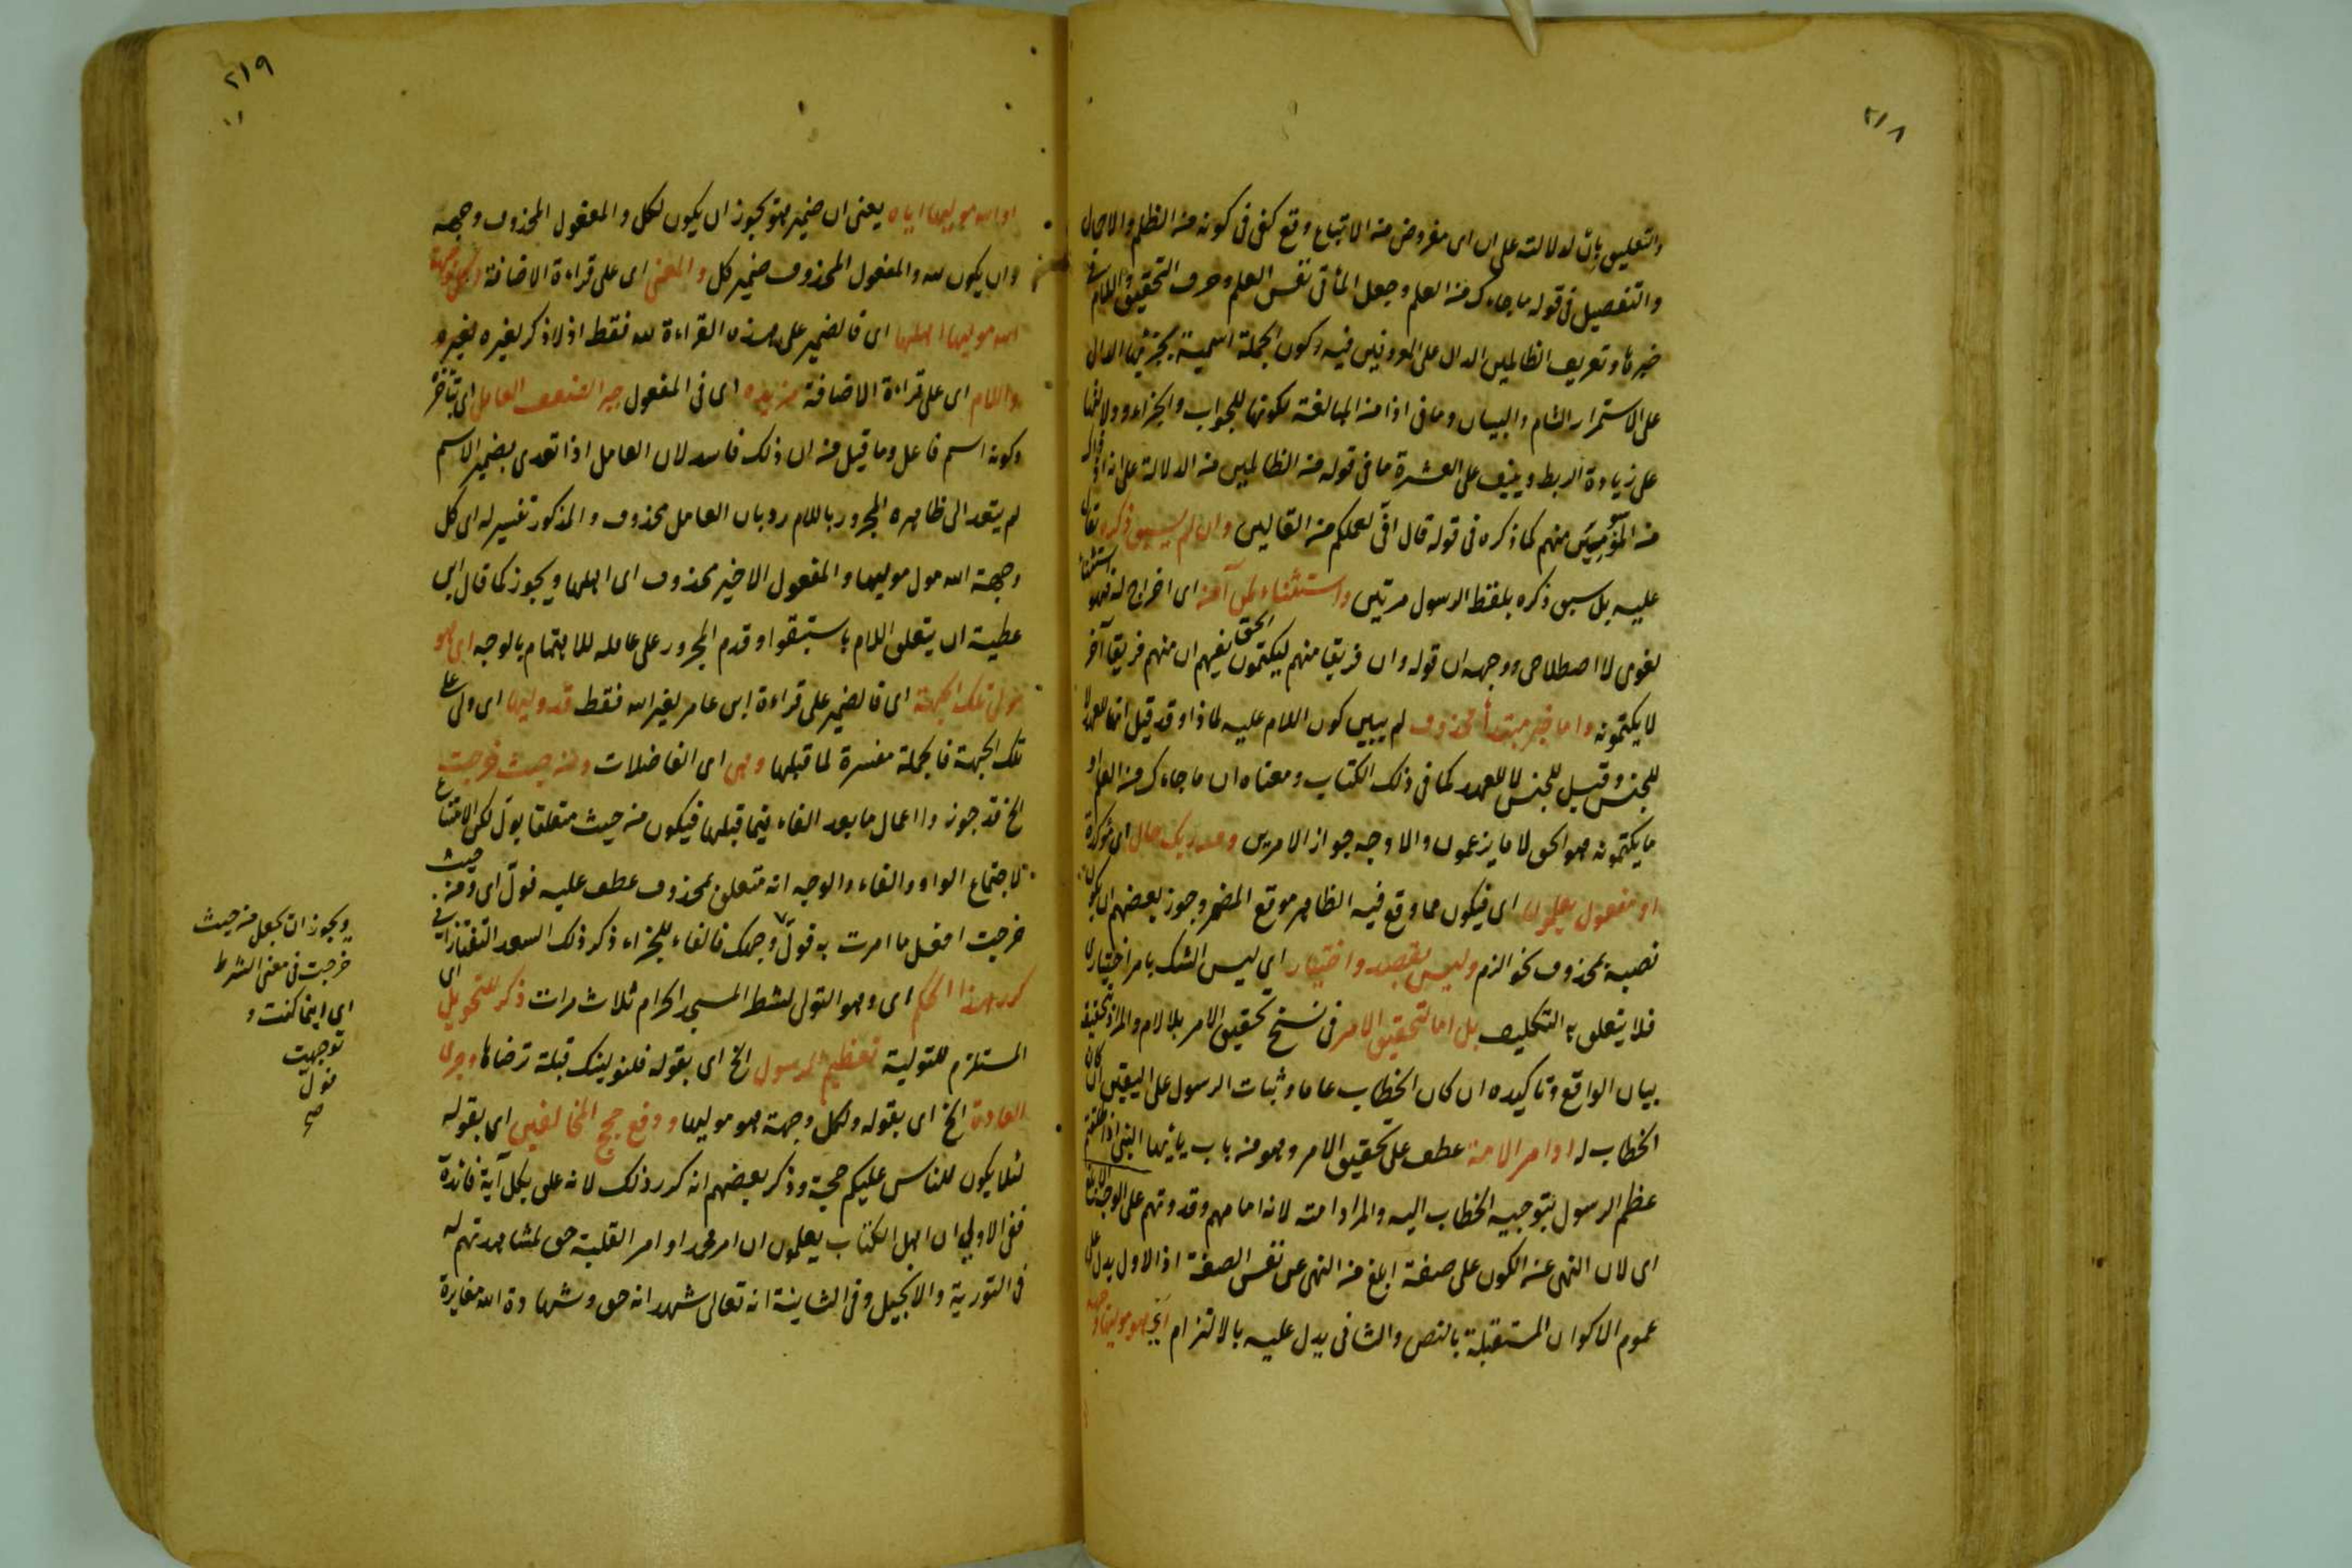 ٢١٨
والتعليق بان لدلالته على ان اى مفروض منه الاتباع وقع كفى فى كونه منه الظلم والاجمال
والتفصيل فى قوله ما جاءك منه العلم وجعل المأتى نفس العلم وحرف التحقيق واللام فى
خبرها وتعريف الظالمين الدال على المعروفين فيه وكون الجملة اسمية بجزئيها الدال
على الاستمرار التام والبيان وما فى اذا منه المبالغة لكونها للجواب والجزاء ودلالتها
على زيادة الربط وينيف على العشرة ما فى قوله منه الظالمين منه الدلالة على انه اذ ذاك
منه المؤيسين منهم كما ذكره فى قوله قال انى لعملكم منه القالين وان لم يسبق ذكره
عليه بل سبق ذكره بلفظ الرسول مرتين واستثناء لمن آمنه اى اخراج له فهو استثناء
لغوى لا اصطلاحى ووجهه ان قوله وان فريقا منهم ليكتمون الحق يفهم ان منهم فريقا آخر
لا يكتمونه واما خبر مبتدأ محذوف لم يبين كون اللام عليه لماذا وقد قيل انها للعهد لا
للجنس وقيل للجنس لا للعهد كما فى ذلك الكتاب ومعناه ان ما جاءك منه العلم او
ما يكتمونه هو الحق لا ما يزعمون والاوجه جواز الامرين ومن ربك حال اى مؤكدة
او مفعول يعلمون اى فيكون مما وقع فيه الظاهر موقع المضمر وجوز بعضهم ان يكون
نصبه بمحذوف نحو الزم وليس بقصد واختيار اي ليس الشك بامر اختيارى
فلا يتعلق به التكليف بل اما لتحقيق الامر فى نسخ تحقيق الامر بلا لام والمراد تحقيقه
بيان الواقع وتأكيده ان كان الخطاب عاما وثبات الرسول على اليقين ان كان
الخطاب له او امر الامة عطف على تحقيق الامر وهو منه باب يايها النبى اذا طلقتم
عظم الرسول بتوجيه الخطاب اليه والمراد امته لانه امامهم وقدوتهم على الوجه الابلغ
اى لان النهى عنه الكون على صفة ابلغ منه النهى عن نفس الصفة اذ الاول يدل على
عموم الاكوان المستقبلة بالنص والثانى يدل عليه بالالتزام اي هو موليها وجهه
٢١٩
او الله موليها اياه يعنى ان ضمير هو يجوز ان يكون لكل والمفعول المحذوف وجهه
وان يكون لله والمفعول المحذوف ضمير كل والمعنى اى على قراءة الاضافة ولكل وجهة
الله موليها اهلها اى فالضمير على هذه القراءة لله فقط اذ لا ذكر لغيره
واللام اى على قراءة الاضافة مزيده اى فى المفعول جبرا لضعف العامل اى بتأخر
وكونه اسم فاعل وما قيل منه ان ذلك فاسد لان العامل اذا تعدى بضمير الاسم
لم يتعد الى ظاهره المجرور باللام رد بان العامل محذوف والمذكور تفسير له اى كل
وجهة الله مول موليها والمفعول الاخير محذوف اى اهلها ويجوز كما قال ابن
عطية ان يتعلق اللام باستبقوا وقدم المجرور على عامله للاهتمام بالوجه اى هو
مولى تلك الجهة اى فالضمير على قراءة ابن عامر لغير الله فقط قد وليها اى ولى على
تلك الجهة فالجملة مفسرة لما قبلها وهى اى الفاضلات ومنه حيث خرجت
الخ قد جوزوا اعمال ما بعد الفاء فيما قبلها فيكون منه حيث متعلقا بول لكن الامتناع
لاجتماع الواو والفاء والوجه انه متعلق بمحذوف عطف عليه فول اى ومنه حيث
خرجت افعل ما امرت به فول وجهك فالفاء للجزاء ذكر ذلك السعد التفتازانى
كرر هذا الحكم اى وهو التولى لشطر المسجد الحرام ثلاث مرات ذكر للتحويل اى
المستلزم للتولية تعظيم الرسول الخ اى بقوله فلنولينك قبلة ترضاها وجرى
العادة الخ اى بقوله ولكل وجهة هو موليها ودفع حجج المخالفين اى بقوله
لئلا يكون للناس عليكم حجة وذكر بعضهم انه كرر ذلك لانه على بكل آية فائدة
ففى الاولى ان اهل الكتاب يعلمون ان امر محمد او امر القبلة حق لمشاهدتهم له
فى التورية والانجيل وفى الثانية انه تعالى شهد انه حق وشهادة الله مغايرة
ويجوز ان يجعل منه حيث
خرجت فى معنى الشرط
اي اينما كنت و
توجهت
فول
صح